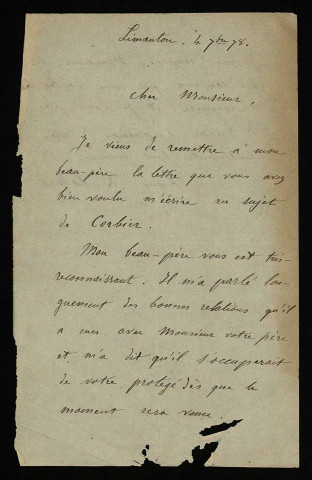 Limanton, 4 7bre 78.
Cher Monsieur,
Je viens de remettre à mon
beau-père la lettre que vous avez
bien voulu m'écrire au sujet
de Corbier.
Mon beau-père vous est très
reconnaissant. Il m'a parlé lon-
guement des bonnes relations qu'il
a eues avec Monsieur votre père
et m'a dit qu'il s'occuperait
de votre protégé dès que le
moment sera venu.